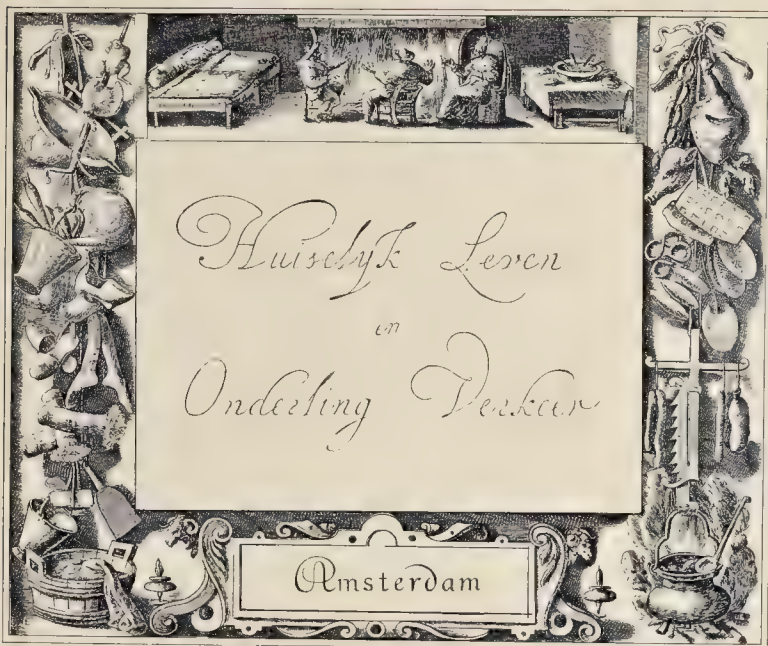 Huiselyk Leven
en
Onderling Verkeer
Amsterdam